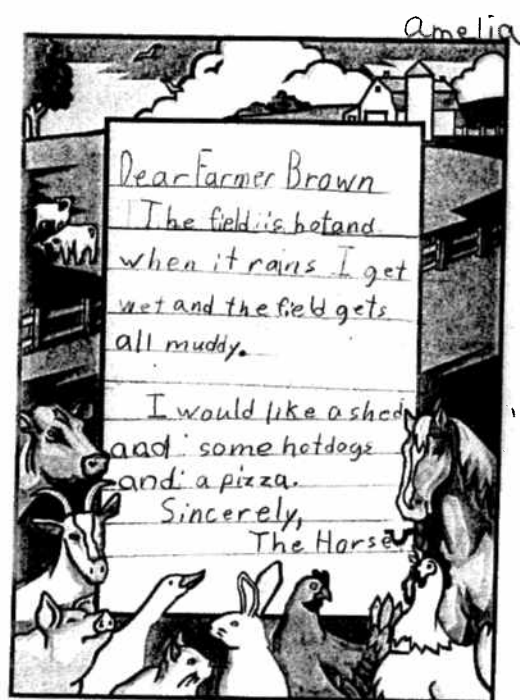 Amelia
Dear Farmer Brown
The field is hot and
when it rains I get
wet and the field gets
all muddy.
I would like a shed
and some hotdogs
and a pizza.
Sincerely,
The Horse